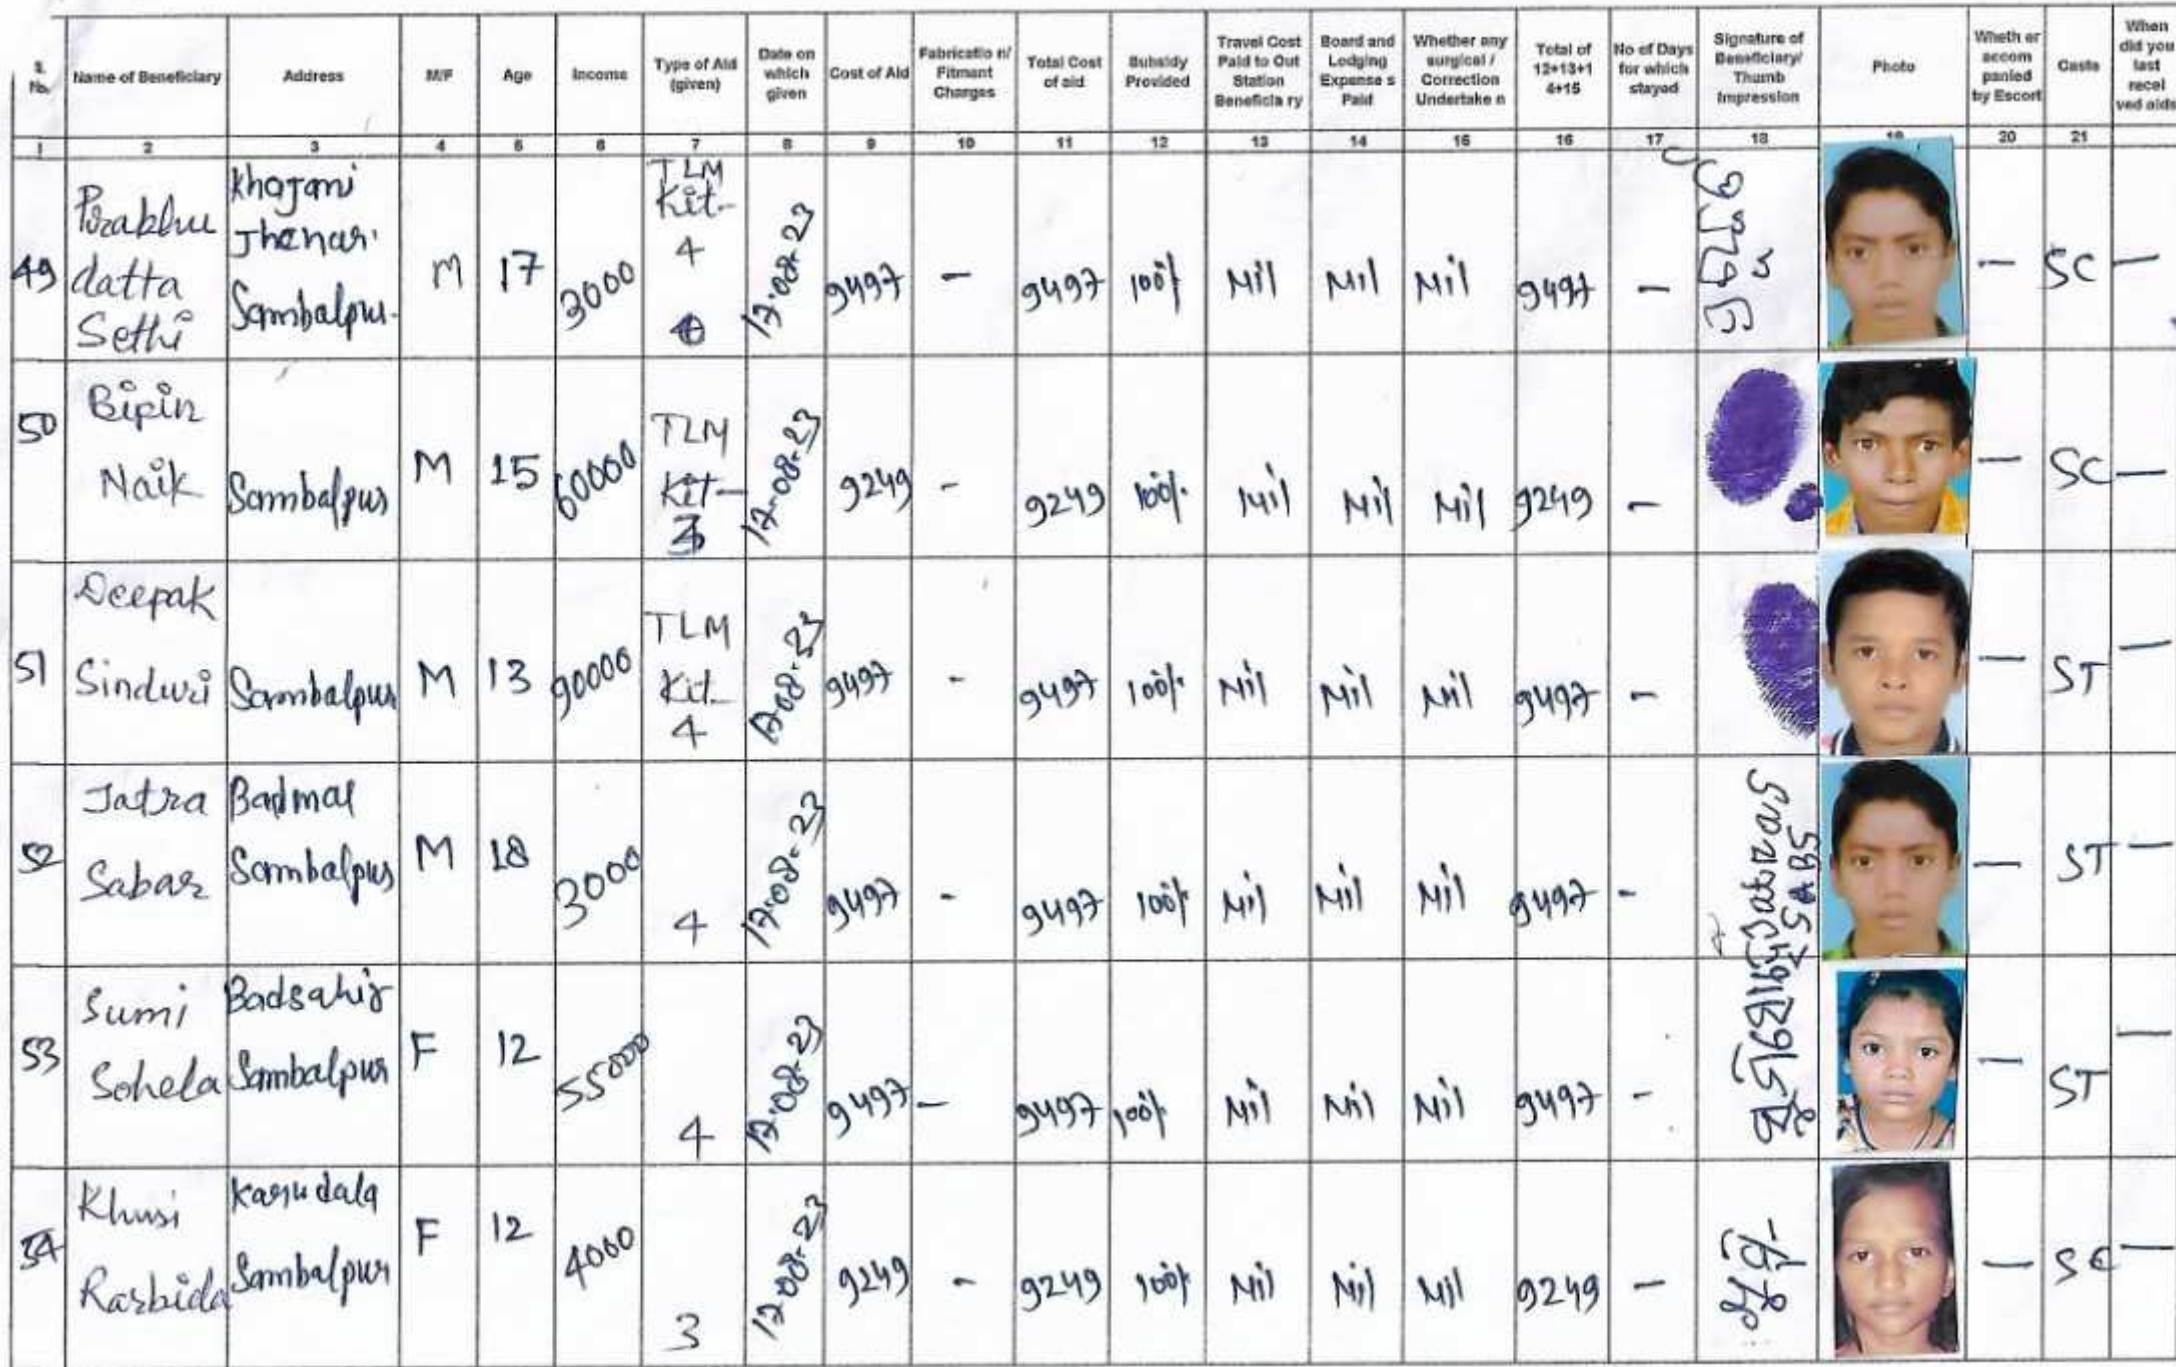 S. No. Name of Beneficiary Address M/F Age Income Type of Aid (given) Date on which given Cost of Aid Fabricatio n/ Fitmant Charges Total Cost of aid Subsidy Provided Travel Cost Paid to Out Station Beneficia ry Board and Lodging Expense s Paid Whether any surgical / Correction Undertake n Total of 12+13+1 4+15 No of Days for which stayed Signature of Beneficiary/ Thumb Impression Photo Wheth er accom panied by Escort Caste When did you last recei ved aids
1 2 3 4 5 6 7 8 9 10 11 12 13 14 15 16 17 18 19 20 21
49 Prabhu datta Sethi Khajani Jhenar. Sambalpur. M 17 3000 TLM Kit- 4 17.08.23 9497 - 9497 100% Nil Nil Nil 9497 - — SC —
50 Bipin Naik Sambalpur M 15 60000 TLM Kit- 3 17-08-23 9249 - 9249 100% Nil Nil Nil 9249 - — SC —
51 Deepak Sinduri Sambalpur M 13 90000 TLM Kit- 4 17-08-23 9497 - 9497 100% Nil Nil Nil 9497 - — ST —
52 Jatra Sabar Badmal Sambalpur M 18 3000 4 17.08.23 9497 - 9497 100% Nil Nil Nil 9497 - — ST —
53 Sumi Sohela Sambalpur F 12 55000 4 17.08.23 9497 - 9497 100% Nil Nil Nil 9497 - — ST —
54 Khusi Karudala Sambalpur F 12 4000 3 17-08-23 9249 - 9249 100% Nil Nil Nil 9249 - — SC —